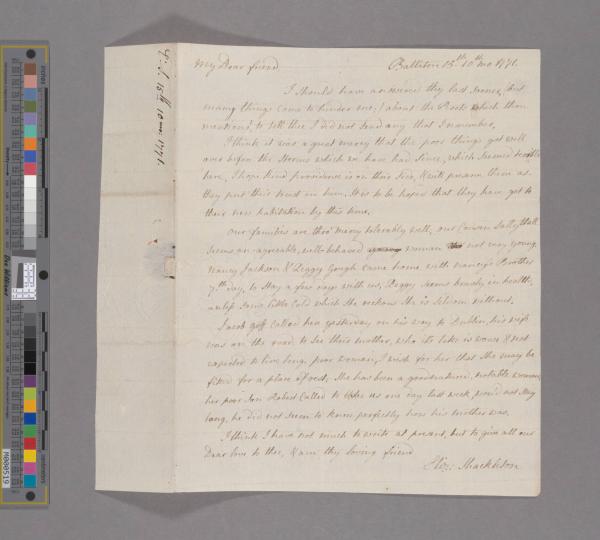 My Dear friend Ballitore 15th 10th mo 1771.
I should have answered thy last sooner, but
many things came to hinder me; / about the Books which thou
mentions, to tell thee I did not send any that I remember,
I think it was a great mercy that the poor things got well
over before the storms which we have had since, which seemed terrible
here, I hope kind providence is on their side, & will preserve them as
they put their trust in him. It is to be hoped that they have got to
their new habitation by this time.
Our families are thro' mercy tolerably well, our Cousin Sally
seems an agreeable, well-behaved young woman not very young.
Nancy Jackson & Peggy Gough came home with Nancy's Brother
7th day, to stay a few days with us, Peggy seems bravely in health,
unless some little Cold which she reckons she is seldom without.
Jacob Goff called here yesterday on his way to Dublin, his wife
was on the road to see their mother, who its like is worse & not
expected to live long. poor woman, I wish for her that she may be
fitted for a place of rest, she has been a goodnatured, notable woman,
her poor Son Robert Called to see us one day last week, would not stay
long, he did not seem to know perfectly how his mother was.
I think I have not much to write at present, but to give all our
Dear love to thee, & am thy loving friend
Eliz: Shackleton
E. S. 15th 10 mo: 1771.
M000519